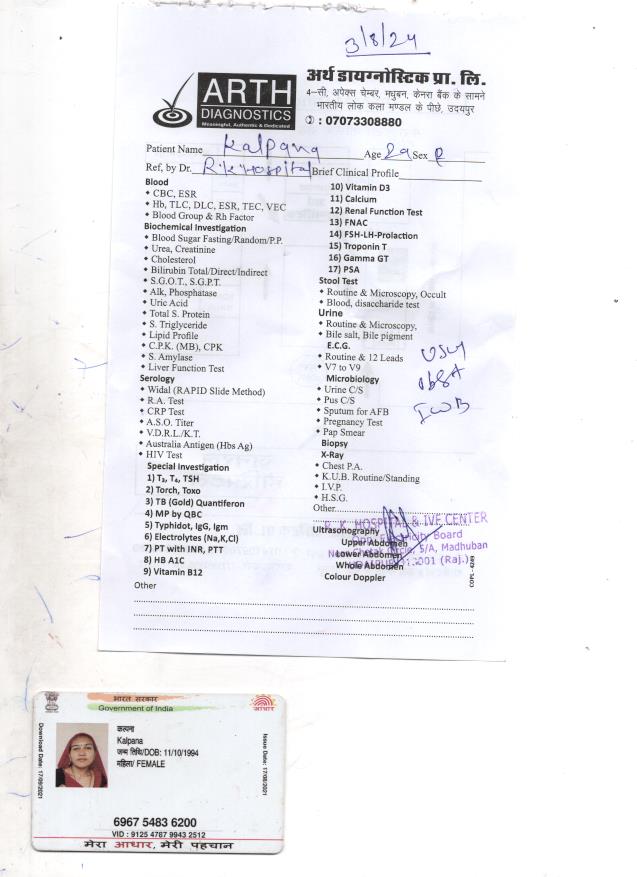 3/8/24
ARTH
DIAGNOSTICS
Meaningful, Authentic & Dedicated
अर्थ डायग्नोस्टिक प्रा. लि.
4–सी, अपेक्स चेम्बर, मधुबन, केनरा बैंक के सामने
भारतीय लोक कला मण्डल के पीछे, उदयपुर
: 07073308880
Patient Name Kalpana Age 29 Sex F
Ref, by Dr. R.K. Hospital Brief Clinical Profile
Blood
CBC, ESR
Hb, TLC, DLC, ESR, TEC, VEC
Blood Group & Rh Factor
Biochemical Investigation
Blood Sugar Fasting/Random/P.P.
Urea, Creatinine
Cholesterol
Bilirubin Total/Direct/Indirect
S.G.O.T., S.G.P.T.
Alk, Phosphatase
Uric Acid
Total S. Protein
S. Triglyceride
Lipid Profile
C.P.K. (MB), CPK
S. Amylase
Liver Function Test
Serology
Widal (RAPID Slide Method)
R.A. Test
CRP Test
A.S.O. Titer
V.D.R.L./K.T.
Australia Antigen (Hbs Ag)
HIV Test
Special Investigation
1) T₃, T₄, TSH
2) Torch, Toxo
3) TB (Gold) Quantiferon
4) MP by QBC
5) Typhidot, IgG, Igm
6) Electrolytes (Na,K,Cl)
7) PT with INR, PTT
8) HB A1C
9) Vitamin B12
10) Vitamin D3
11) Calcium
12) Renal Function Test
13) FNAC
14) FSH-LH-Prolaction
15) Troponin T
16) Gamma GT
17) PSA
Stool Test
Routine & Microscopy, Occult
Blood, disaccharide test
Urine
Routine & Microscopy,
Bile salt, Bile pigment
E.C.G.
Routine & 12 Leads
V7 to V9
Microbiology
Urine C/S
Pus C/S
Sputum for AFB
Pregnancy Test
Pap Smear
Biopsy
X-Ray
Chest P.A.
K.U.B. Routine/Standing
I.V.P.
H.S.G.
Other
Ultrasonography
Upper Abdomen
Lower Abdomen
Whole Abdomen
Colour Doppler
R. K. HOSPITAL & IVF CENTER
5/A, Madhuban
(Raj.)
COPL - 4249
Other
भारत सरकार
Government of India
आधार
Download Date: 17/09/2021
कल्पना
Kalpana
जन्म तिथि/DOB: 11/10/1994
महिला/ FEMALE
6967 5483 6200
VID : 9125 4787 9943 2512
मेरा आधार, मेरी पहचान